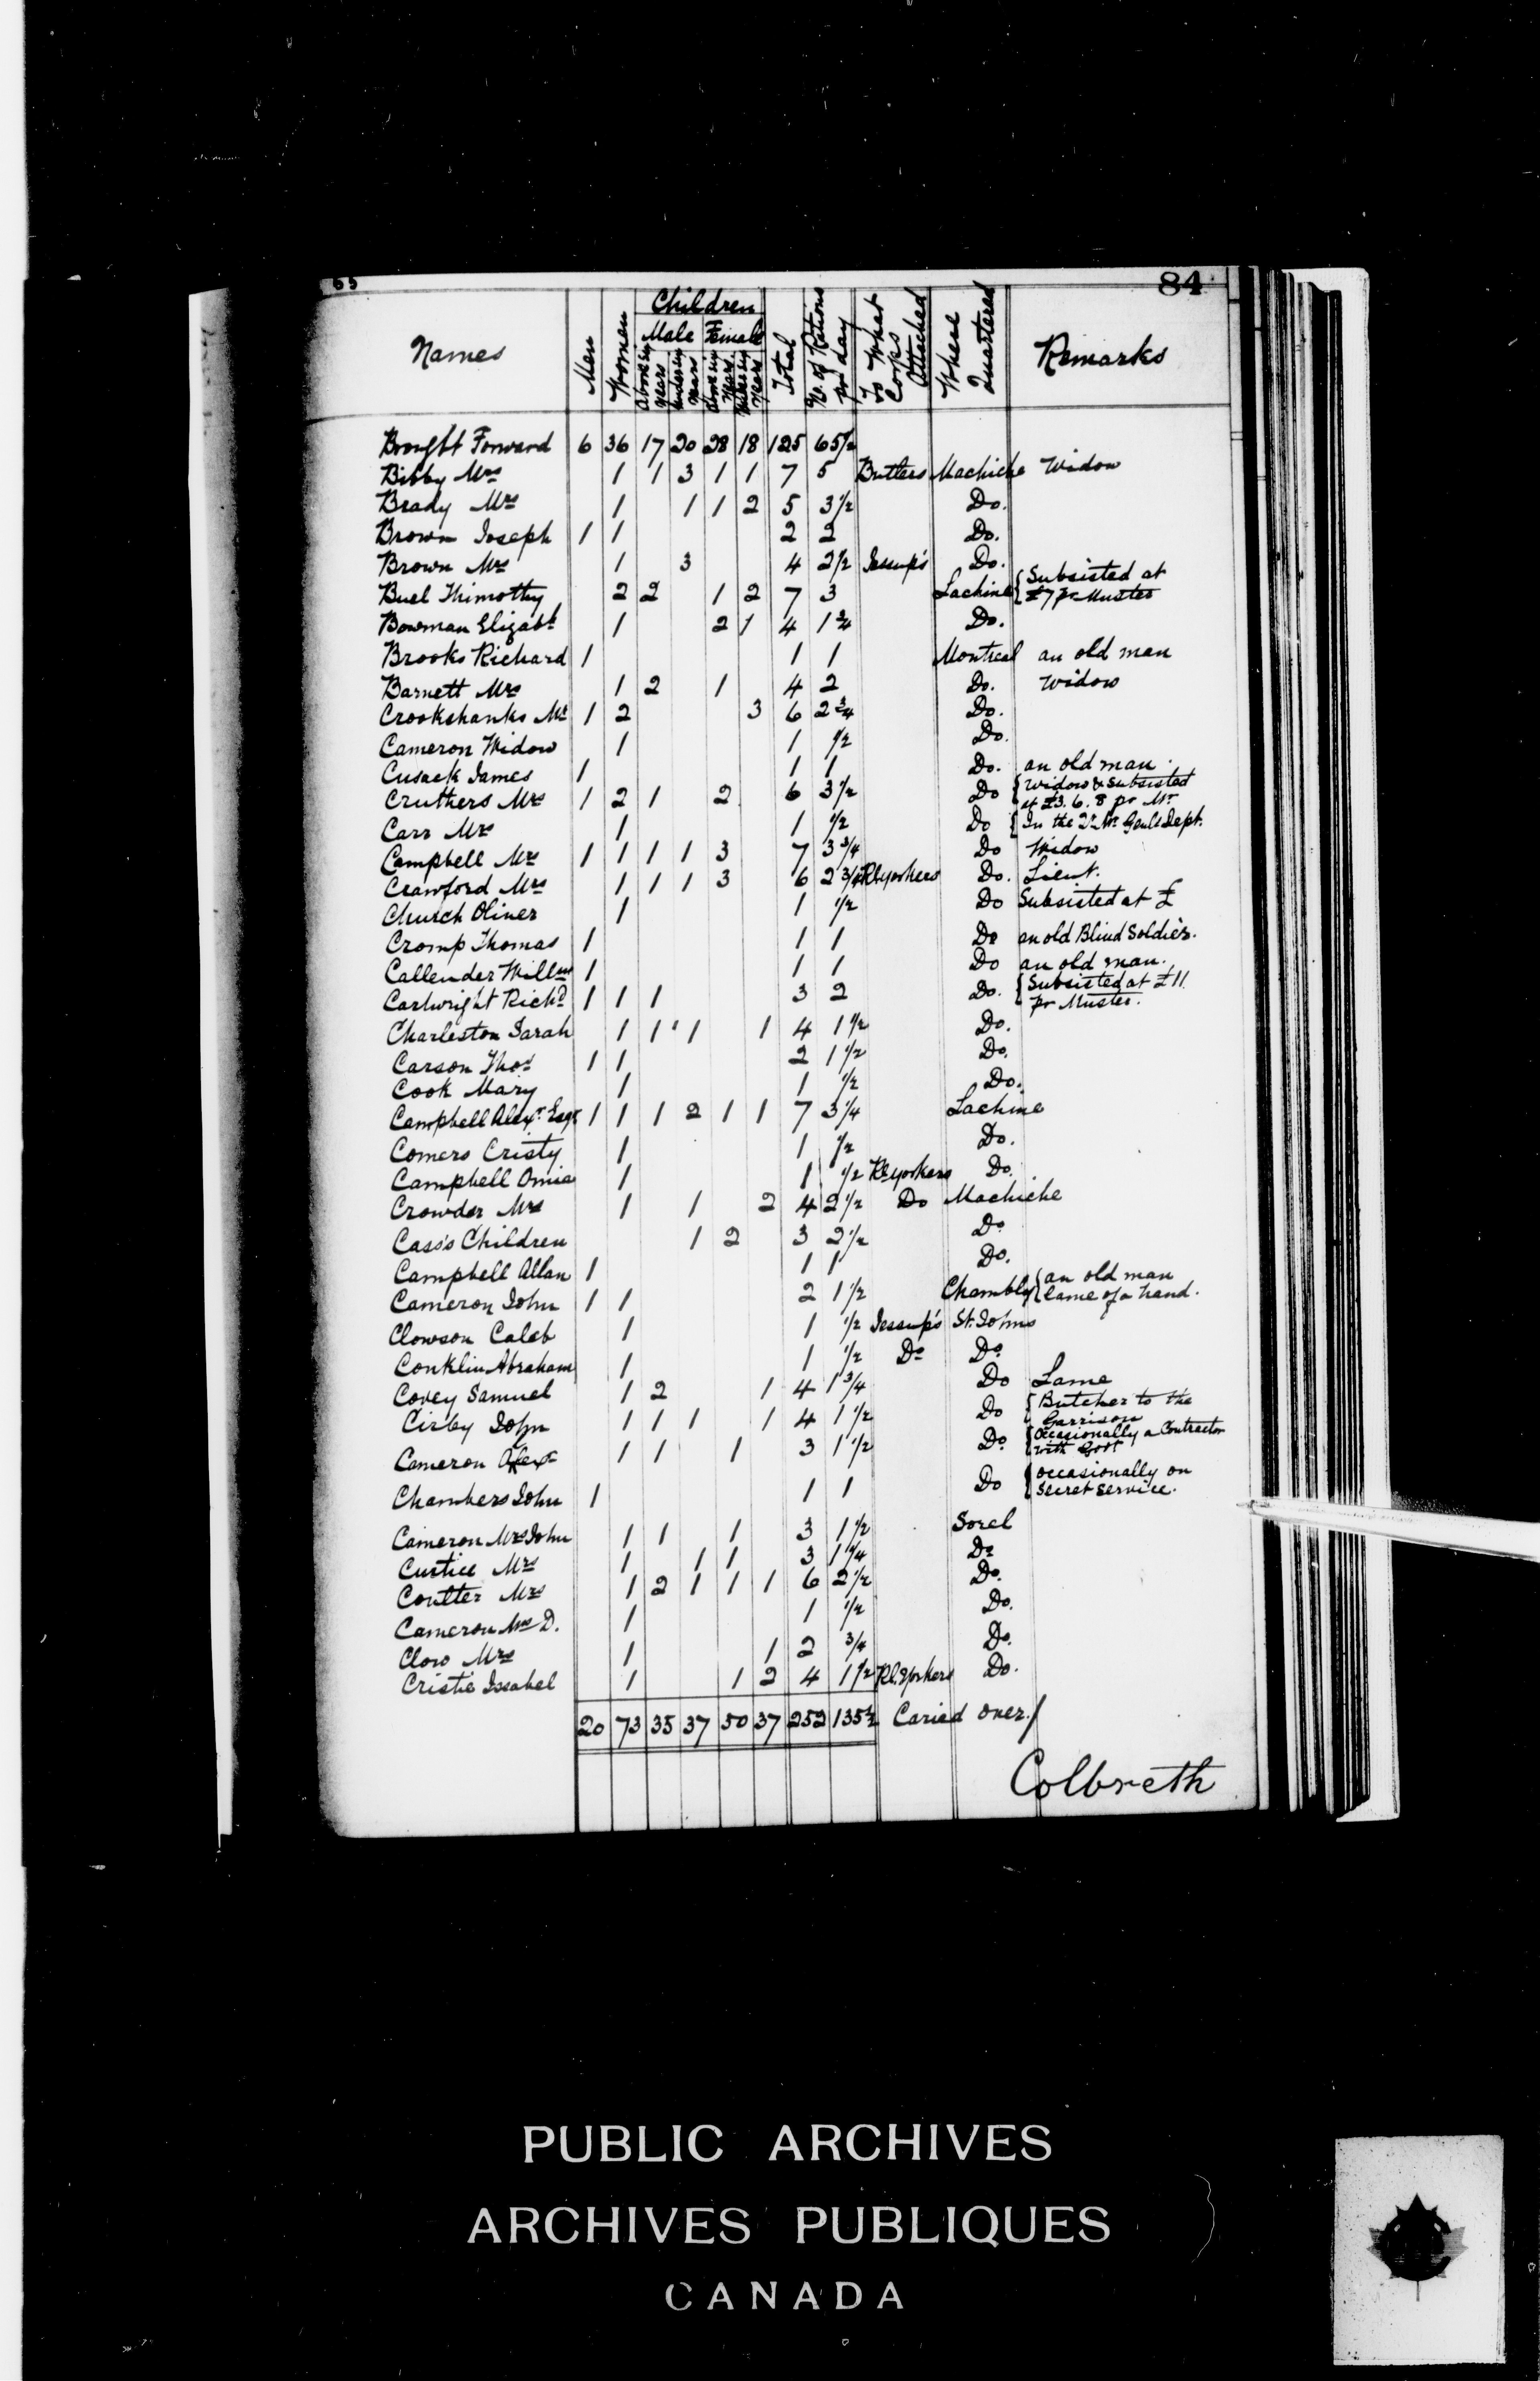 65
84
Names Men Women Children Male Above six Years Under six Years Female Above six Years Under six Years Total No. of Rations pr day To What Corps Attached Where Quartered Remarks
Brought Forward 6 36 17 20 28 18 125 65½
Bibby Mrs 1 1 3 1 1 7 5 Butlers Machiche Widow
Brady Mrs 1 1 1 2 5 3½ Do.
Brown Joseph 1 1 2 2 Do.
Brown Mrs 1 3 4 2½ Jessup's Do.
Buel Thimothy 2 2 1 2 7 3 Lachine {Subsisted at
£7 pr Muster
Bowman Elizabt 1 2 1 4 1¾ Do.
Brooks Richard 1 1 1 Montreal an old man
Barnett Mrs 1 2 1 4 2 Do. Widow
Crookshanks Mr 1 2 3 6 2¾ Do.
Cameron Widow 1 1 ½ Do.
Cusack James 1 1 1 Do. an old man.
Cruthers Mrs 1 2 1 2 6 3½ Do {Widow & Subsisted
at £3.6.8 pr Mr
Carr Mrs 1 1 ½ Do {In the Qr Mr Genls Dept.
Campbell Mrs 1 1 1 1 3 7 3¾ Do Widow
Crawford Mrs 1 1 1 3 6 2¾ Rl. yorkers Do. Lieut.
Church Oliver 1 1 ½ Do Subsisted at £
Cromp Thomas 1 1 1 Do an old Blind Soldier.
Callender Willm 1 1 1 Do an old man.
Cartwright Richd 1 1 1 3 2 Do. {Subsisted at £11
pr Muster.
Charleston Sarah 1 1 1 1 4 1½ Do.
Carson Thos 1 1 2 1½ Do.
Cook Mary 1 1 ½ Do.
Campbell Alexr. Esqr 1 1 1 2 1 1 7 3¼ Lachine
Comers Cristy 1 1 ½ Do.
Campbell Omia 1 1 ½ Rl. yorkers Do.
Crowder Mrs 1 1 2 4 2½ Do Machiche
Cass's Children 1 2 3 2½ Do
Campbell Allan 1 1 1 Do.
Cameron John 1 1 2 1½ Chambly {an old man
lame of a hand.
Clowson Caleb 1 1 ½ Jessup's St. Johns
Conklin Abraham 1 1 ½ Do Do
Covey Samuel 1 2 1 4 1¾ Do Lame
Cirby John 1 1 1 1 4 1½ Do {Butcher to the
Garrison
Cameron Alexr 1 1 1 3 1½ Do. {Occasionally a Contractor
with Govt
Chambers John 1 1 1 Do {occasionally on
Secret Service.
Cameron Mrs John 1 1 1 3 1½ Sorel
Curtice Mrs 1 1 1 3 1¼ Do
Coutter Mrs 1 2 1 1 1 6 2½ Do.
Cameron Mrs D. 1 1 ½ Do.
Clow Mrs 1 1 2 ¾ Do.
Cristie Issabel 1 1 2 4 1½ Rl. Yorkers Do.
20 73 35 37 50 37 252 135½ Caried over/
Colbreth
PUBLIC ARCHIVES
ARCHIVES PUBLIQUES
CANADA